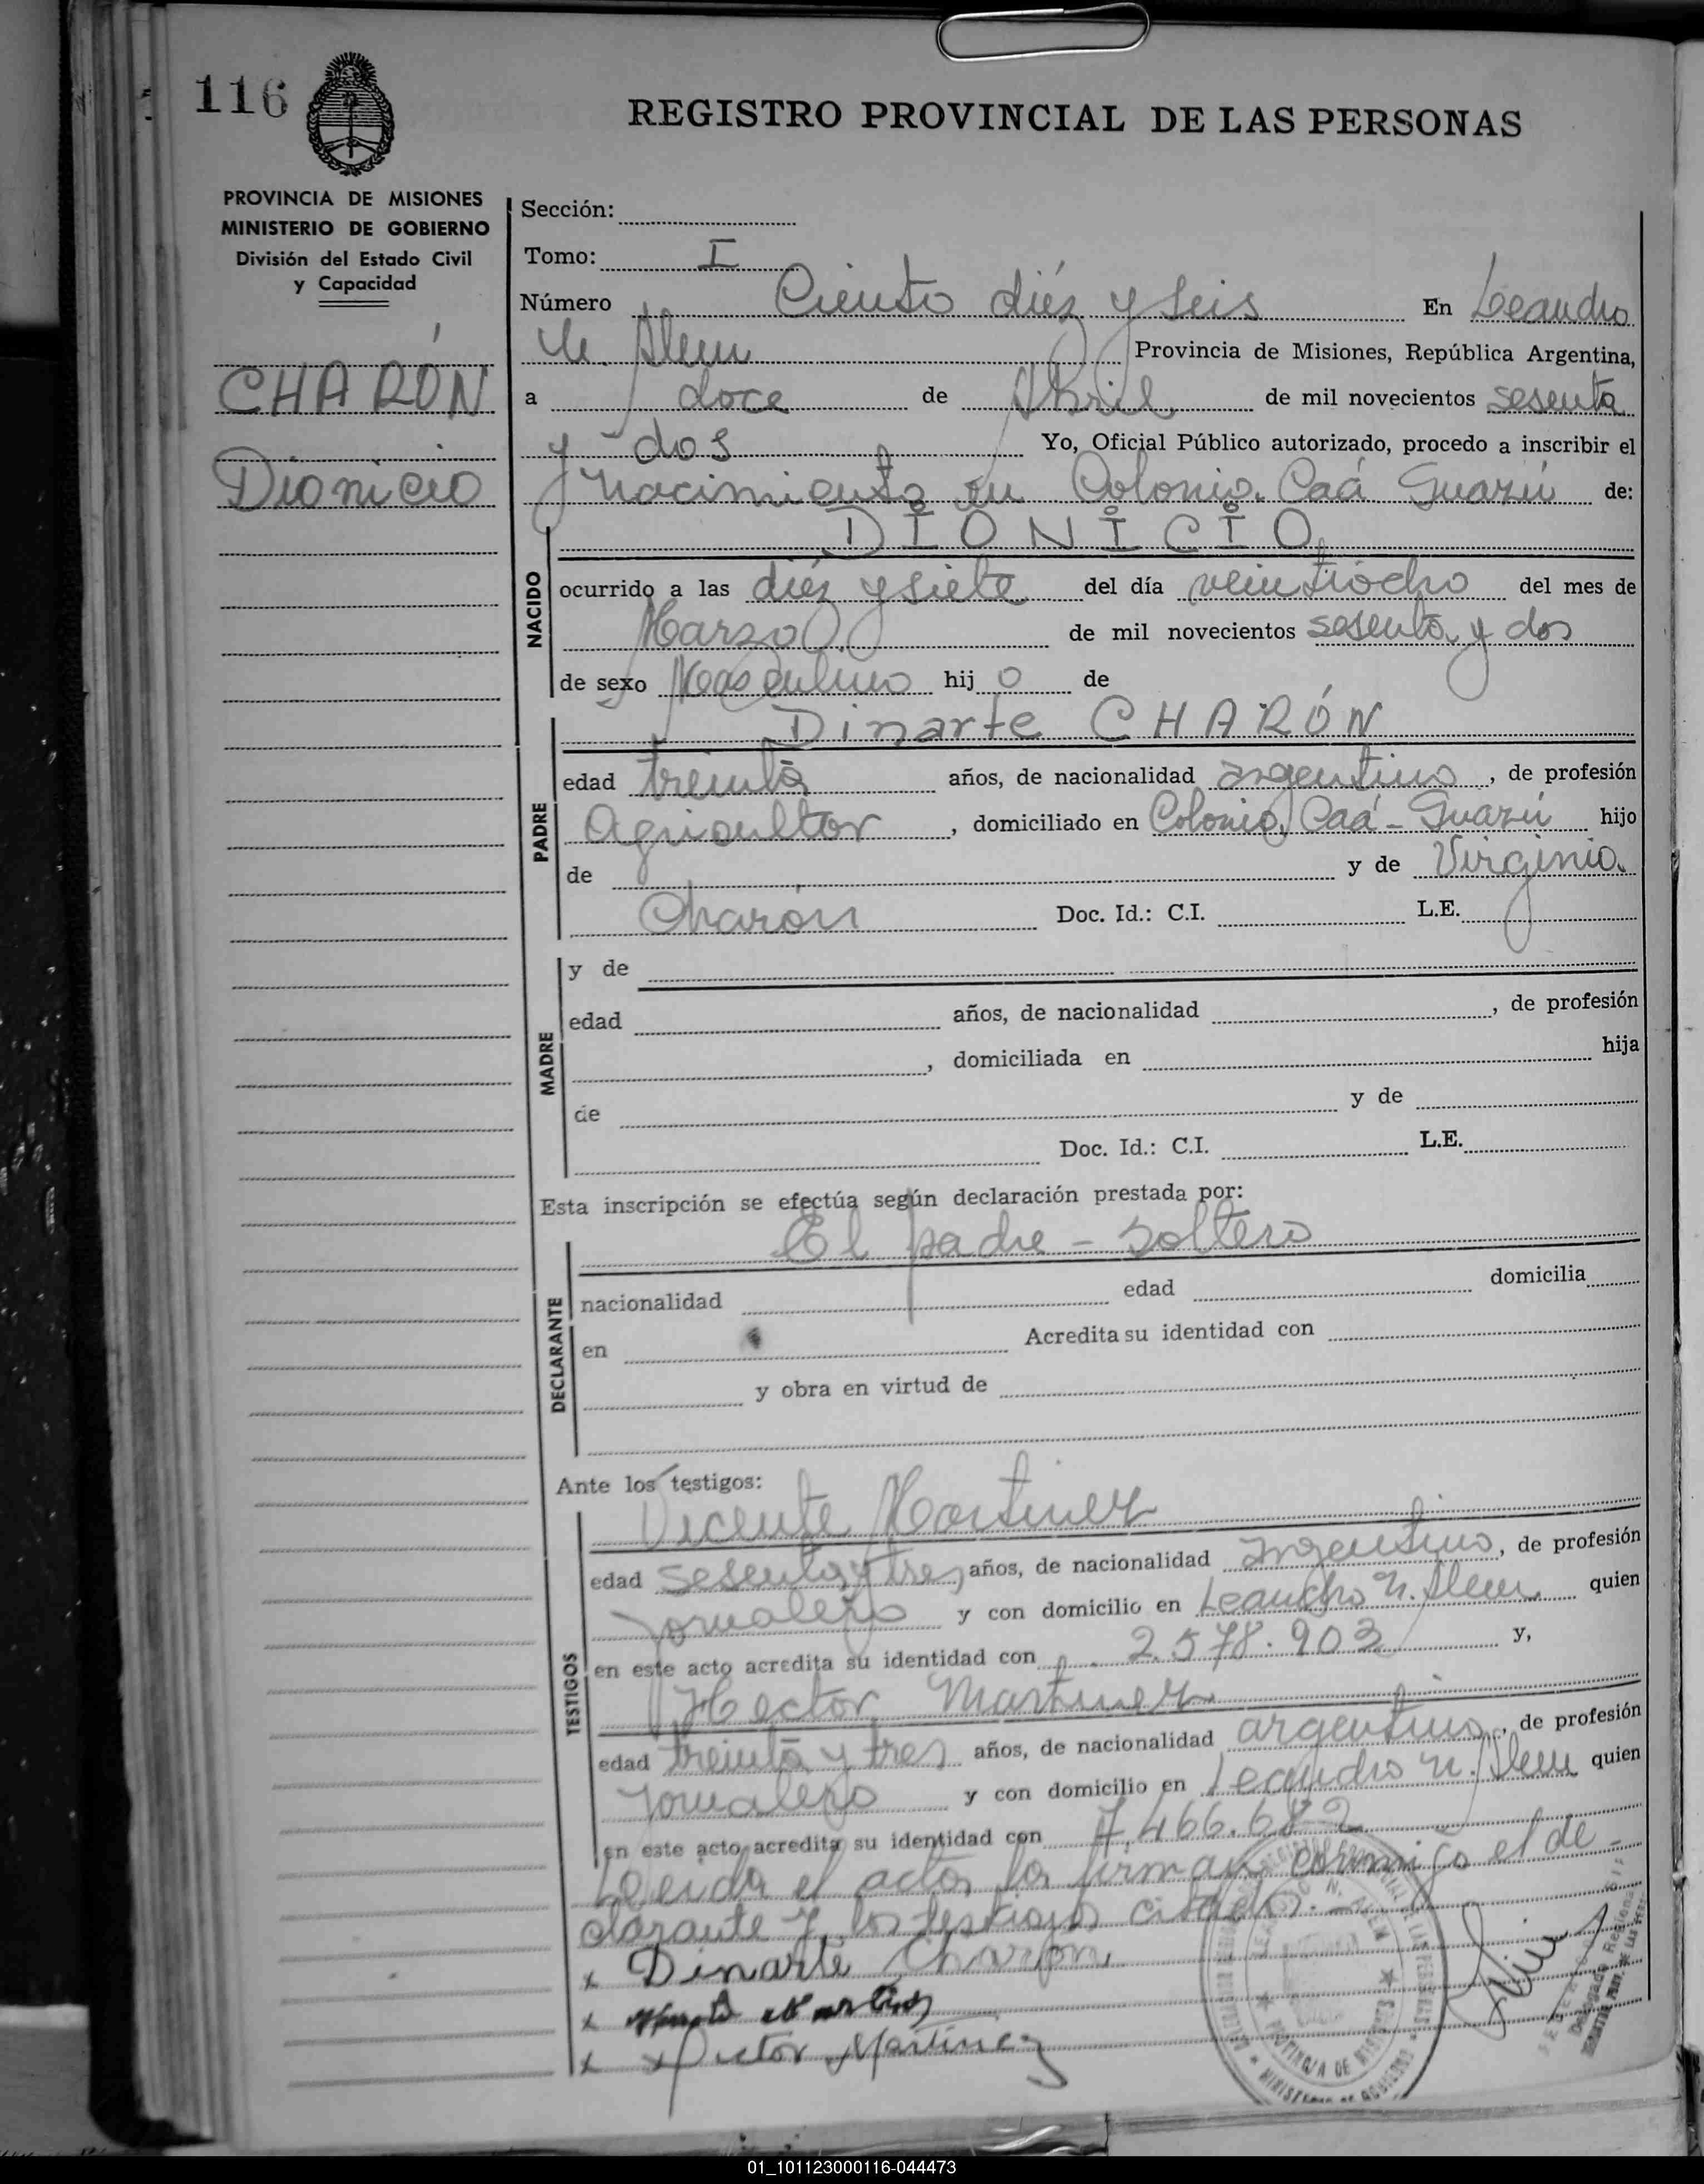 116
REGISTRO PROVINCIAL DE LAS PERSONAS
PROVINCIA DE MISIONES
MINISTERIO DE GOBIERNO
División del Estado Civil
y Capacidad
CHARÓN
Dionicio
Sección:
Tomo: I
Número Ciento diéz y seis En Leandro
N. Alem Provincia de Misiones, República Argentina,
a doce de Abril de mil novecientos sesenta
y dos Yo, Oficial Público autorizado, procedo a inscribir el
nacimiento en Colonia Caá Guazú de:
NACIDO
DIONICIO
ocurrido a las diéz y siete del día veintiocho del mes de
Marzo de mil novecientos sesenta y dos
de sexo Masculino hij o de
PADRE
Dinarte CHARÓN
edad treinta años, de nacionalidad argentino, de profesión
Agricultor, domiciliado en Colonia Caá-Guazú hijo
de y de Virginia
Charón Doc. Id.: C.I. L.E.
MADRE
y de
edad años, de nacionalidad , de profesión
, domiciliada en hija
de y de
Doc. Id.: C.I. L.E.
Esta inscripción se efectúa según declaración prestada por:
El padre - soltero
DECLARANTE
nacionalidad edad domicilia
en Acredita su identidad con
y obra en virtud de
Ante los testigos:
TESTIGOS
Vicente Martinez
edad sesenta y tres años, de nacionalidad argentino, de profesión
Jornalero y con domicilio en Leandro N. Alem quien
en este acto acredita su identidad con 2.578.903 y,
Hector Martinez
edad treinta y tres años, de nacionalidad argentino, de profesión
Jornalero y con domicilio en Leandro N. Alem quien
en este acto acredita su identidad con 7.466.682
Leida el acta, la firman conmigo el de-
clarante y los testigos citados.-
x Dinarte Charon
x
x Hector Martinez
PROVINCIA DE MISIONES
Delegado Regional
01_101123000116-044473